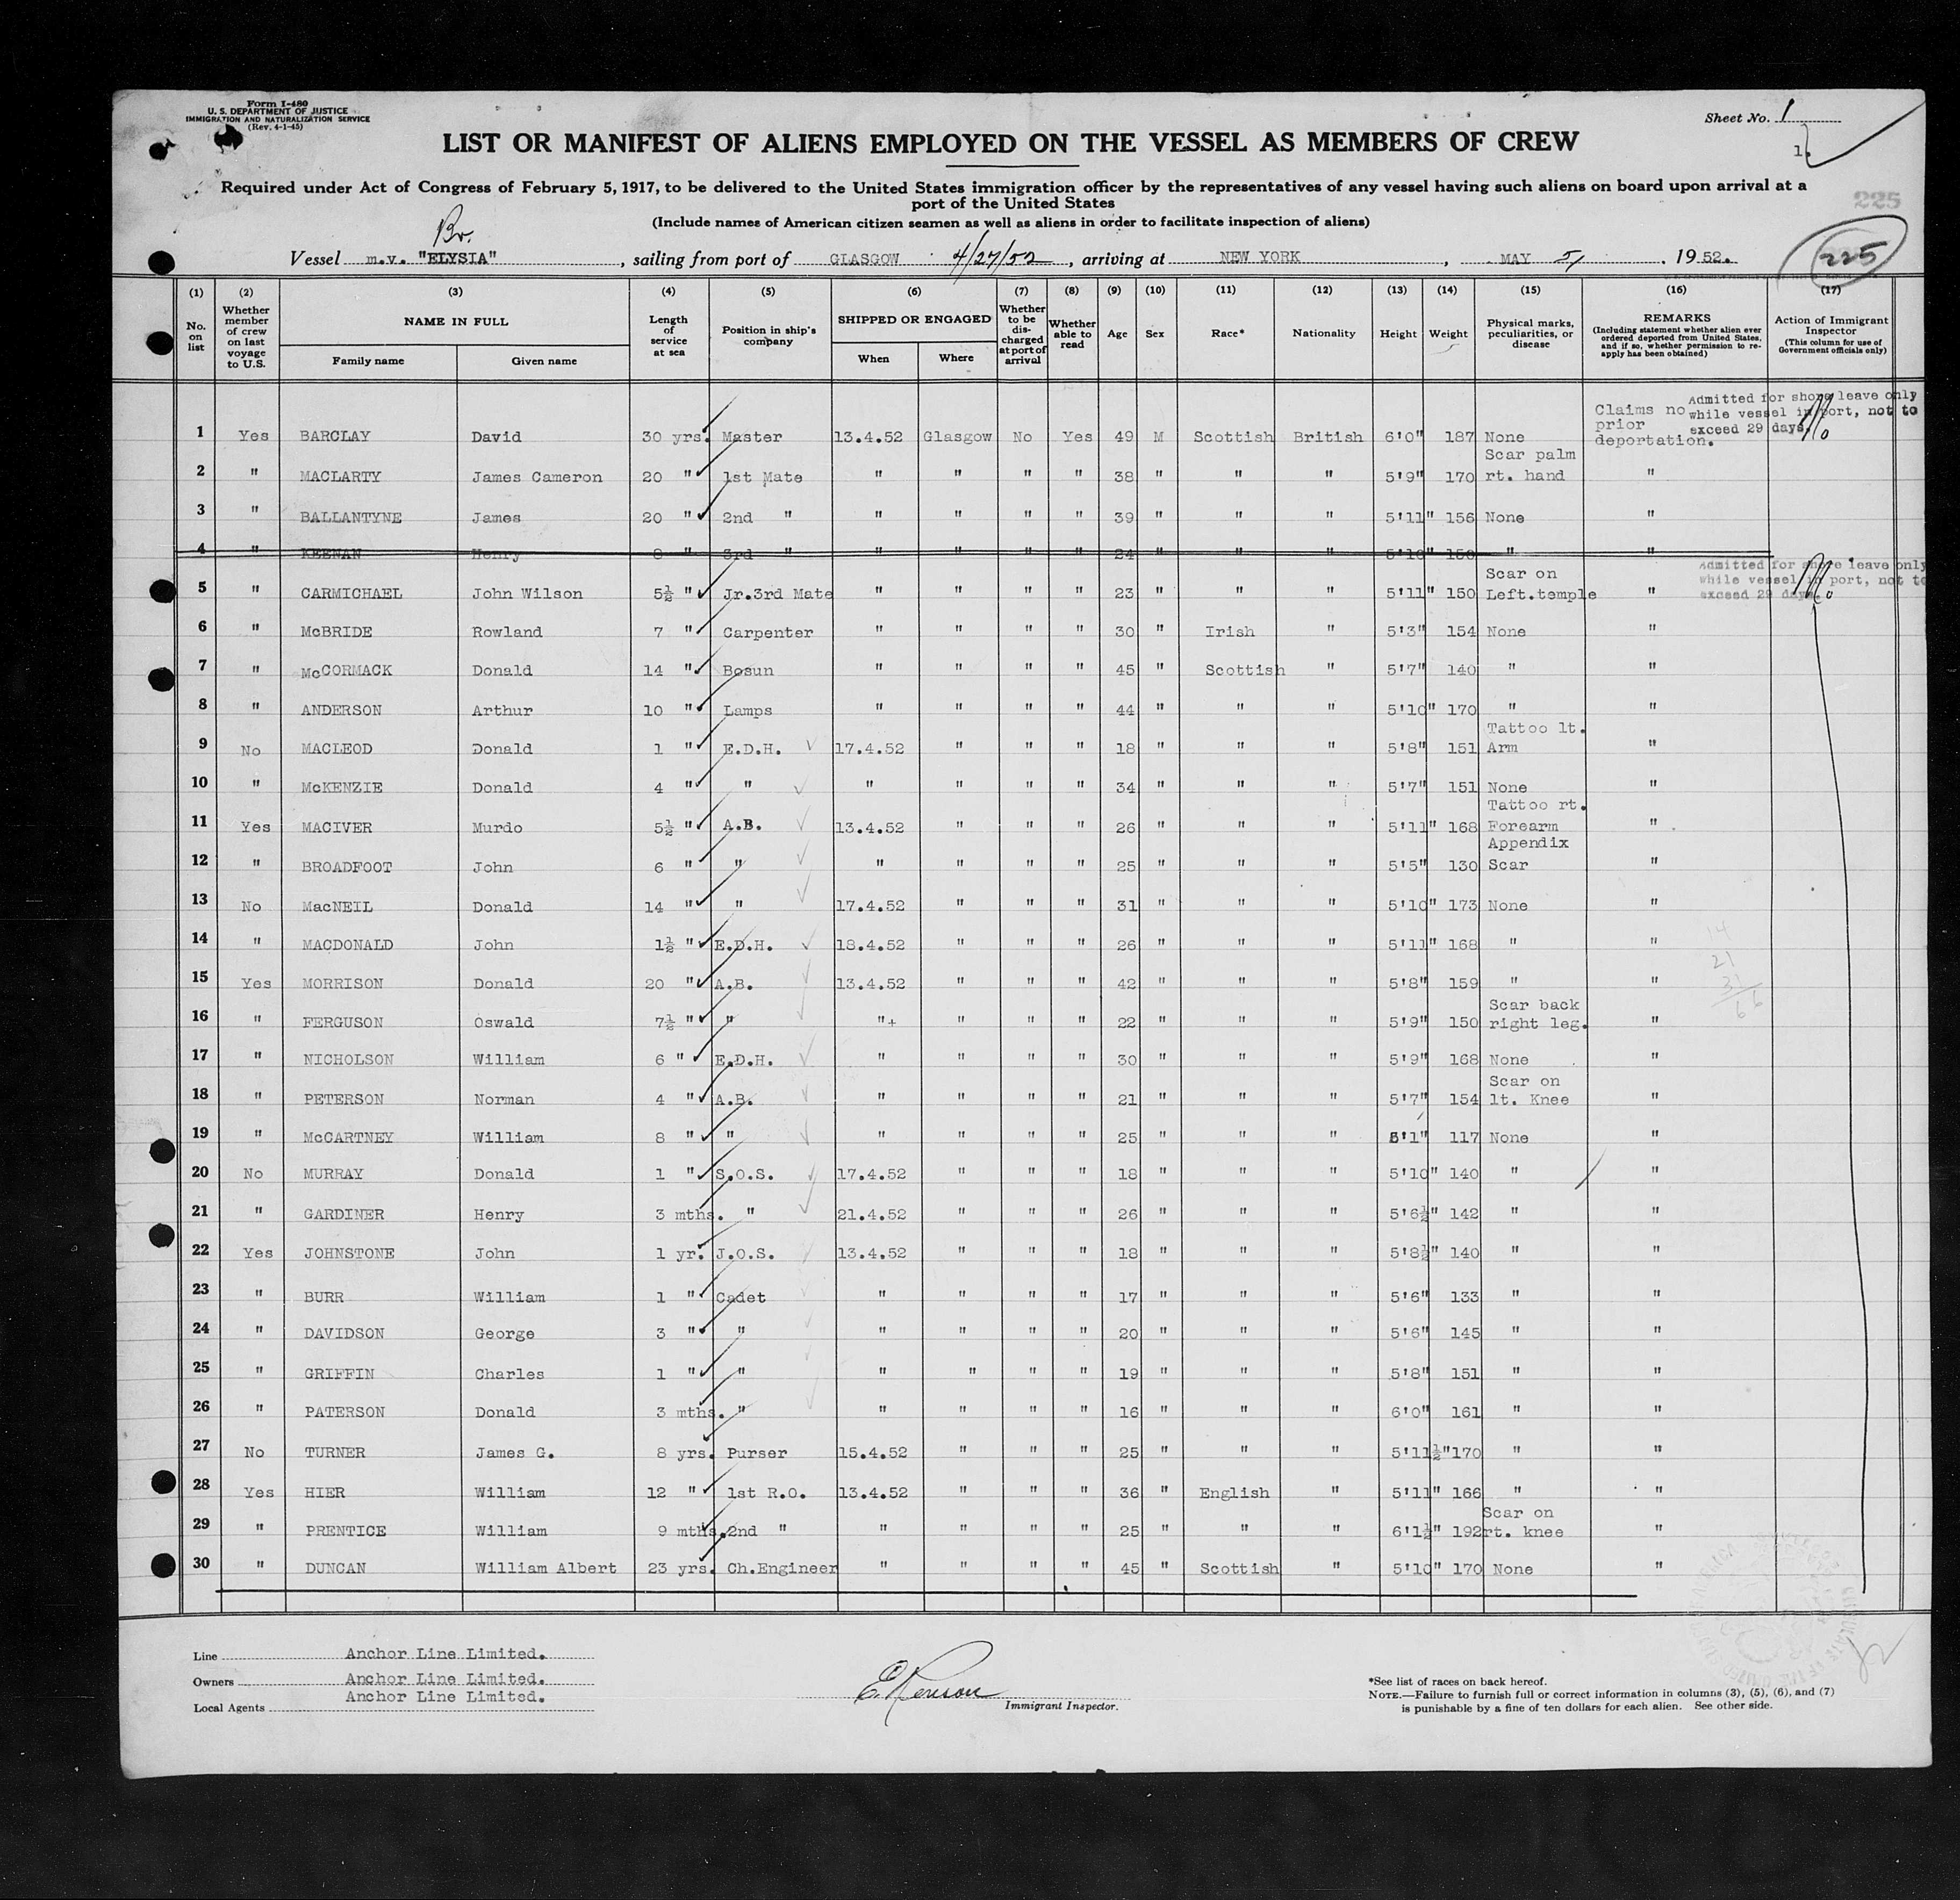 Form I-480
U. S. DEPARTMENT OF JUSTICE
IMMIGRATION AND NATURALIZATION SERVICE
(Rev. 4-1-45)
Sheet No. 1
1.
LIST OR MANIFEST OF ALIENS EMPLOYED ON THE VESSEL AS MEMBERS OF CREW
Required under Act of Congress of February 5, 1917, to be delivered to the United States immigration officer by the representatives of any vessel having such aliens on board upon arrival at a
port of the United States
225
(Include names of American citizen seamen as well as aliens in order to facilitate inspection of aliens)
Br.
Vessel m.v. "ELYSIA", sailing from port of GLASGOW 4/27/52, arriving at NEW YORK, MAY 5, 1952.
225
(1) No. on list
(2) Whether member of crew on last voyage to U.S.
(3) NAME IN FULL Family name Given name
(4) Length of service at sea
(5) Position in ship's company
(6) SHIPPED OR ENGAGED When Where
(7) Whether to be discharged at port of arrival
(8) Whether able to read
(9) Age
(10) Sex
(11) Race*
(12) Nationality
(13) Height
(14) Weight
(15) Physical marks, peculiarities, or disease
(16) REMARKS (Including statement whether alien ever ordered deported from United States, and if so, whether permission to re-apply has been obtained)
(17) Action of Immigrant Inspector (This column for use of Government officials only)
Admitted for shore leave only while vessel in port, not to exceed 29 days.
1 Yes BARCLAY David 30 yrs. Master 13.4.52 Glasgow No Yes 49 M Scottish British 6'0" 187 None Claims no prior deportation.
2 " MACLARTY James Cameron 20 " 1st Mate " " " " 38 " " " 5'9" 170 Scar palm rt. hand "
3 " BALLANTYNE James 20 " 2nd " " " " " 39 " " " 5'11" 156 None "
4 " KEENAN Henry 8 " 3rd " " " " " 24 " " " 5'10" 150 " "
Admitted for shore leave only while vessel in port, not to exceed 29 days.
5 " CARMICHAEL John Wilson 5½ " Jr.3rd Mate " " " " 23 " " " 5'11" 150 Scar on Left.temple "
6 " McBRIDE Rowland 7 " Carpenter " " " " 30 " Irish " 5'3" 154 None "
7 " McCORMACK Donald 14 " Bosun " " " " 45 " Scottish " 5'7" 140 " "
8 " ANDERSON Arthur 10 " Lamps " " " " 44 " " " 5'10" 170 " "
9 No MACLEOD Donald 1 " E.D.H. 17.4.52 " " " 18 " " " 5'8" 151 Tattoo lt. Arm "
10 " McKENZIE Donald 4 " " " " " " 34 " " " 5'7" 151 None "
11 Yes MACIVER Murdo 5½ " A.B. 13.4.52 " " " 26 " " " 5'11" 168 Tattoo rt. Forearm "
12 " BROADFOOT John 6 " " " " " " 25 " " " 5'5" 130 Appendix Scar "
13 No MacNEIL Donald 14 " " 17.4.52 " " " 31 " " " 5'10" 173 None "
14 " MACDONALD John 1½ " E.D.H. 18.4.52 " " " 26 " " " 5'11" 168 " "
15 Yes MORRISON Donald 20 " A.B. 13.4.52 " " " 42 " " " 5'8" 159 " "
16 " FERGUSON Oswald 7½ " " "+ " " " 22 " " " 5'9" 150 Scar back right leg. "
17 " NICHOLSON William 6 " E.D.H. " " " " 30 " " " 5'9" 168 None "
18 " PETERSON Norman 4 " A.B. " " " " 21 " " " 5'7" 154 Scar on lt. Knee "
19 " McCARTNEY William 8 " " " " " " 25 " " " 5'1" 117 None "
20 No MURRAY Donald 1 " S.O.S. 17.4.52 " " " 18 " " " 5'10" 140 " "
21 " GARDINER Henry 3 mths. " 21.4.52 " " " 26 " " " 5'6½" 142 " "
22 Yes JOHNSTONE John 1 yr. J.O.S. 13.4.52 " " " 18 " " " 5'8½" 140 " "
23 " BURR William 1 " Cadet " " " " 17 " " " 5'6" 133 " "
24 " DAVIDSON George 3 " " " " " " 20 " " " 5'6" 145 " "
25 " GRIFFIN Charles 1 " " " " " " 19 " " " 5'8" 151 " "
26 " PATERSON Donald 3 mths. " " " " " 16 " " " 6'0" 161 " "
27 No TURNER James G. 8 yrs. Purser 15.4.52 " " " 25 " " " 5'11½" 170 " "
28 Yes HIER William 12 " 1st R.O. 13.4.52 " " " 36 " English " 5'11" 166 " "
29 " PRENTICE William 9 mths. 2nd " " " " " 25 " " " 6'1½" 192 Scar on rt. knee "
30 " DUNCAN William Albert 23 yrs. Ch.Engineer " " " " 45 " Scottish " 5'10" 170 None "
14
21
31
66
Line Anchor Line Limited.
Owners Anchor Line Limited.
Local Agents Anchor Line Limited.
Immigrant Inspector.
*See list of races on back hereof.
NOTE.—Failure to furnish full or correct information in columns (3), (5), (6), and (7)
is punishable by a fine of ten dollars for each alien. See other side.